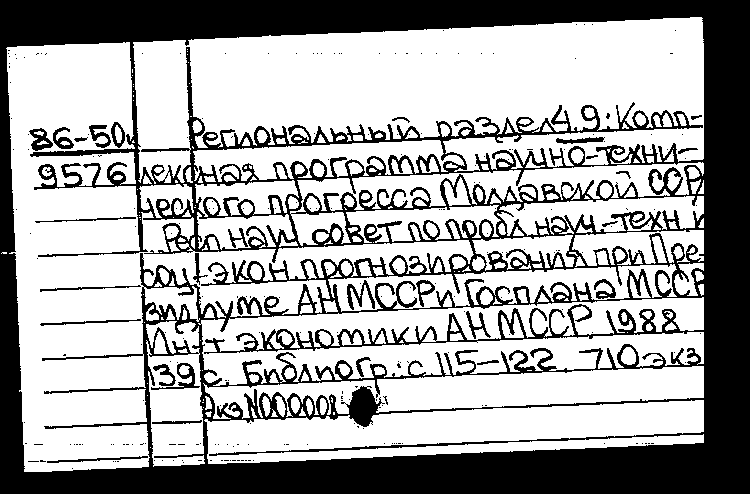 86-50и Региональный раздел 4.9: Комп-
9576 лексная программа научно-техни-
ческого прогресса Молдавской ССР
Респ. науч. совет по пробл. науч.-техн. и
соц.-экон. прогнозирования при Пре-
зидиуме АН МССР и Госплана МССР
Ин-т экономики АН МССР. 1988.
139 с. Библиогр.: с. 115-122. 710 экз
Экз N000008